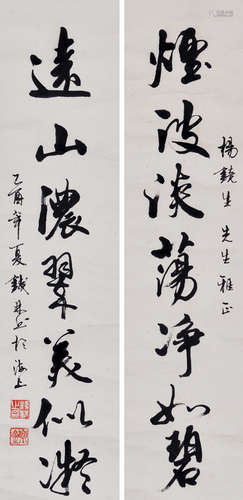 楊鏡生先生雅正
煙波淡蕩淨如碧
遠山濃翠美似凝
乙酉年夏
於海上